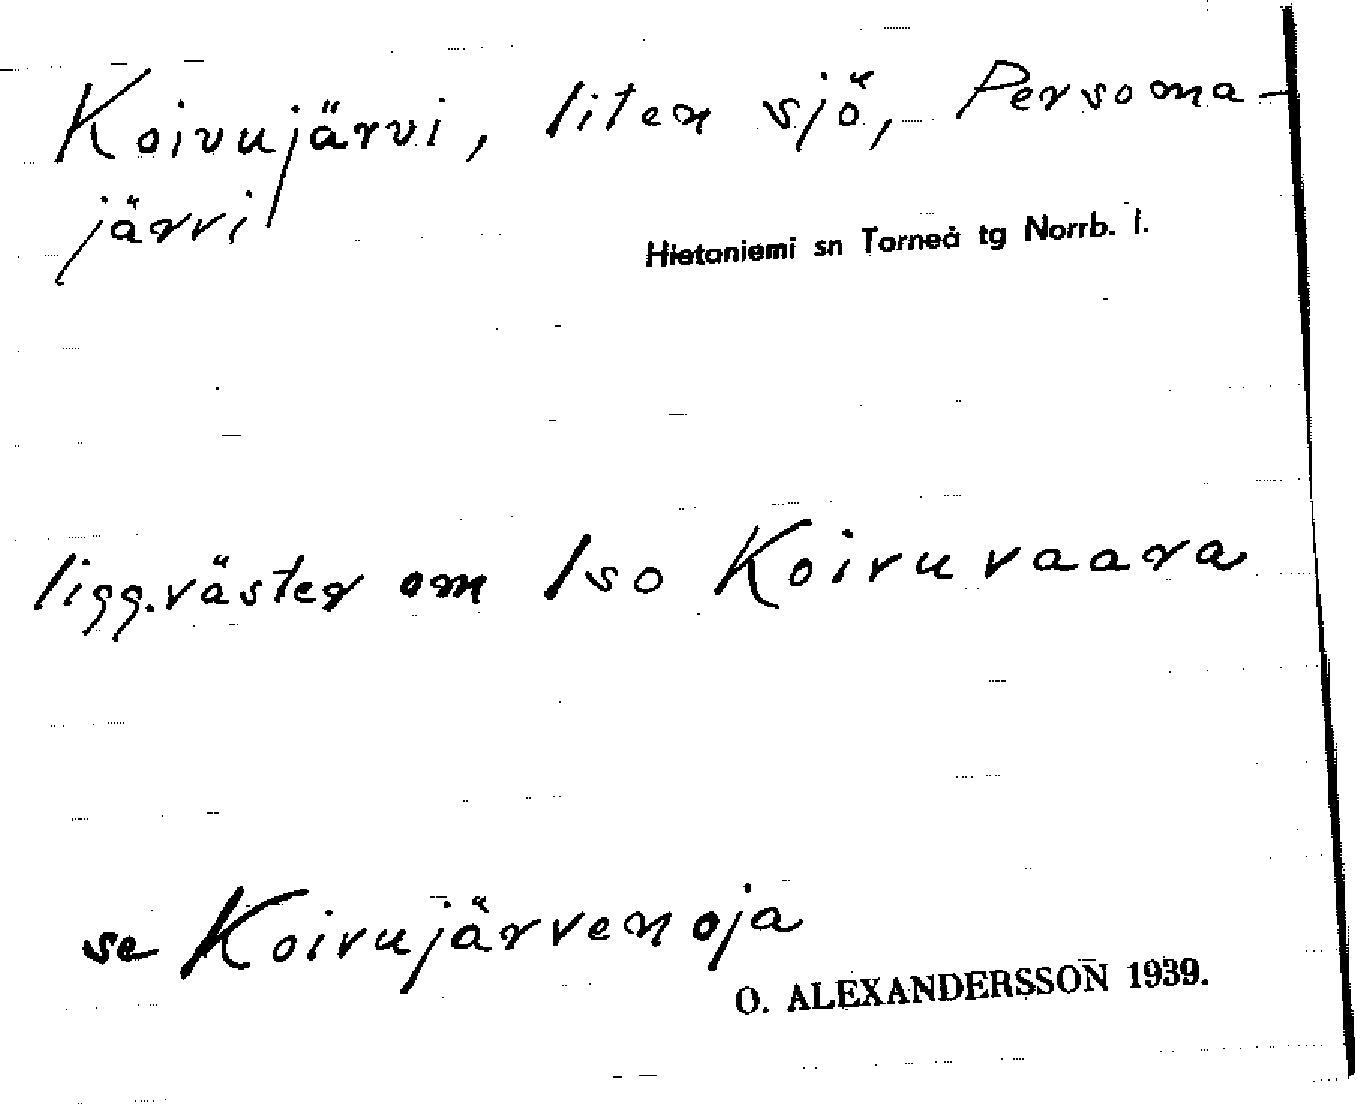 Koivujärvi, liten sjö, Persoma-
järvi
Hietaniemi sn Torneå tg Norrb. l.
ligg. väster om Iso Koivuvaara
se Koivujärvenoja
O. ALEXANDERSSON 1939.